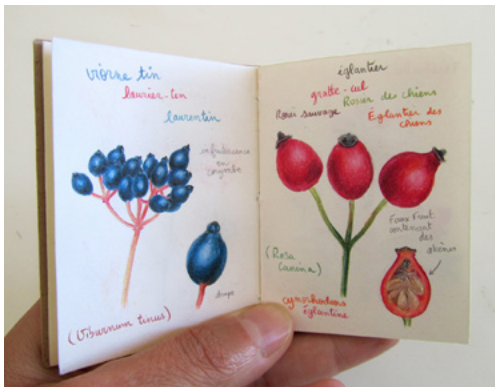 viorne tin
laurier-tin
laurentin
infrutescence
en
corymbe
drupe
(Viburnum tinus)
églantier
gratte-cul
Rosier des chiens
Rosier sauvage
Églantier des
chiens
Faux Fruit
contenant
des
akènes
(Rosa
Canina)
cynorrhodons
églantine